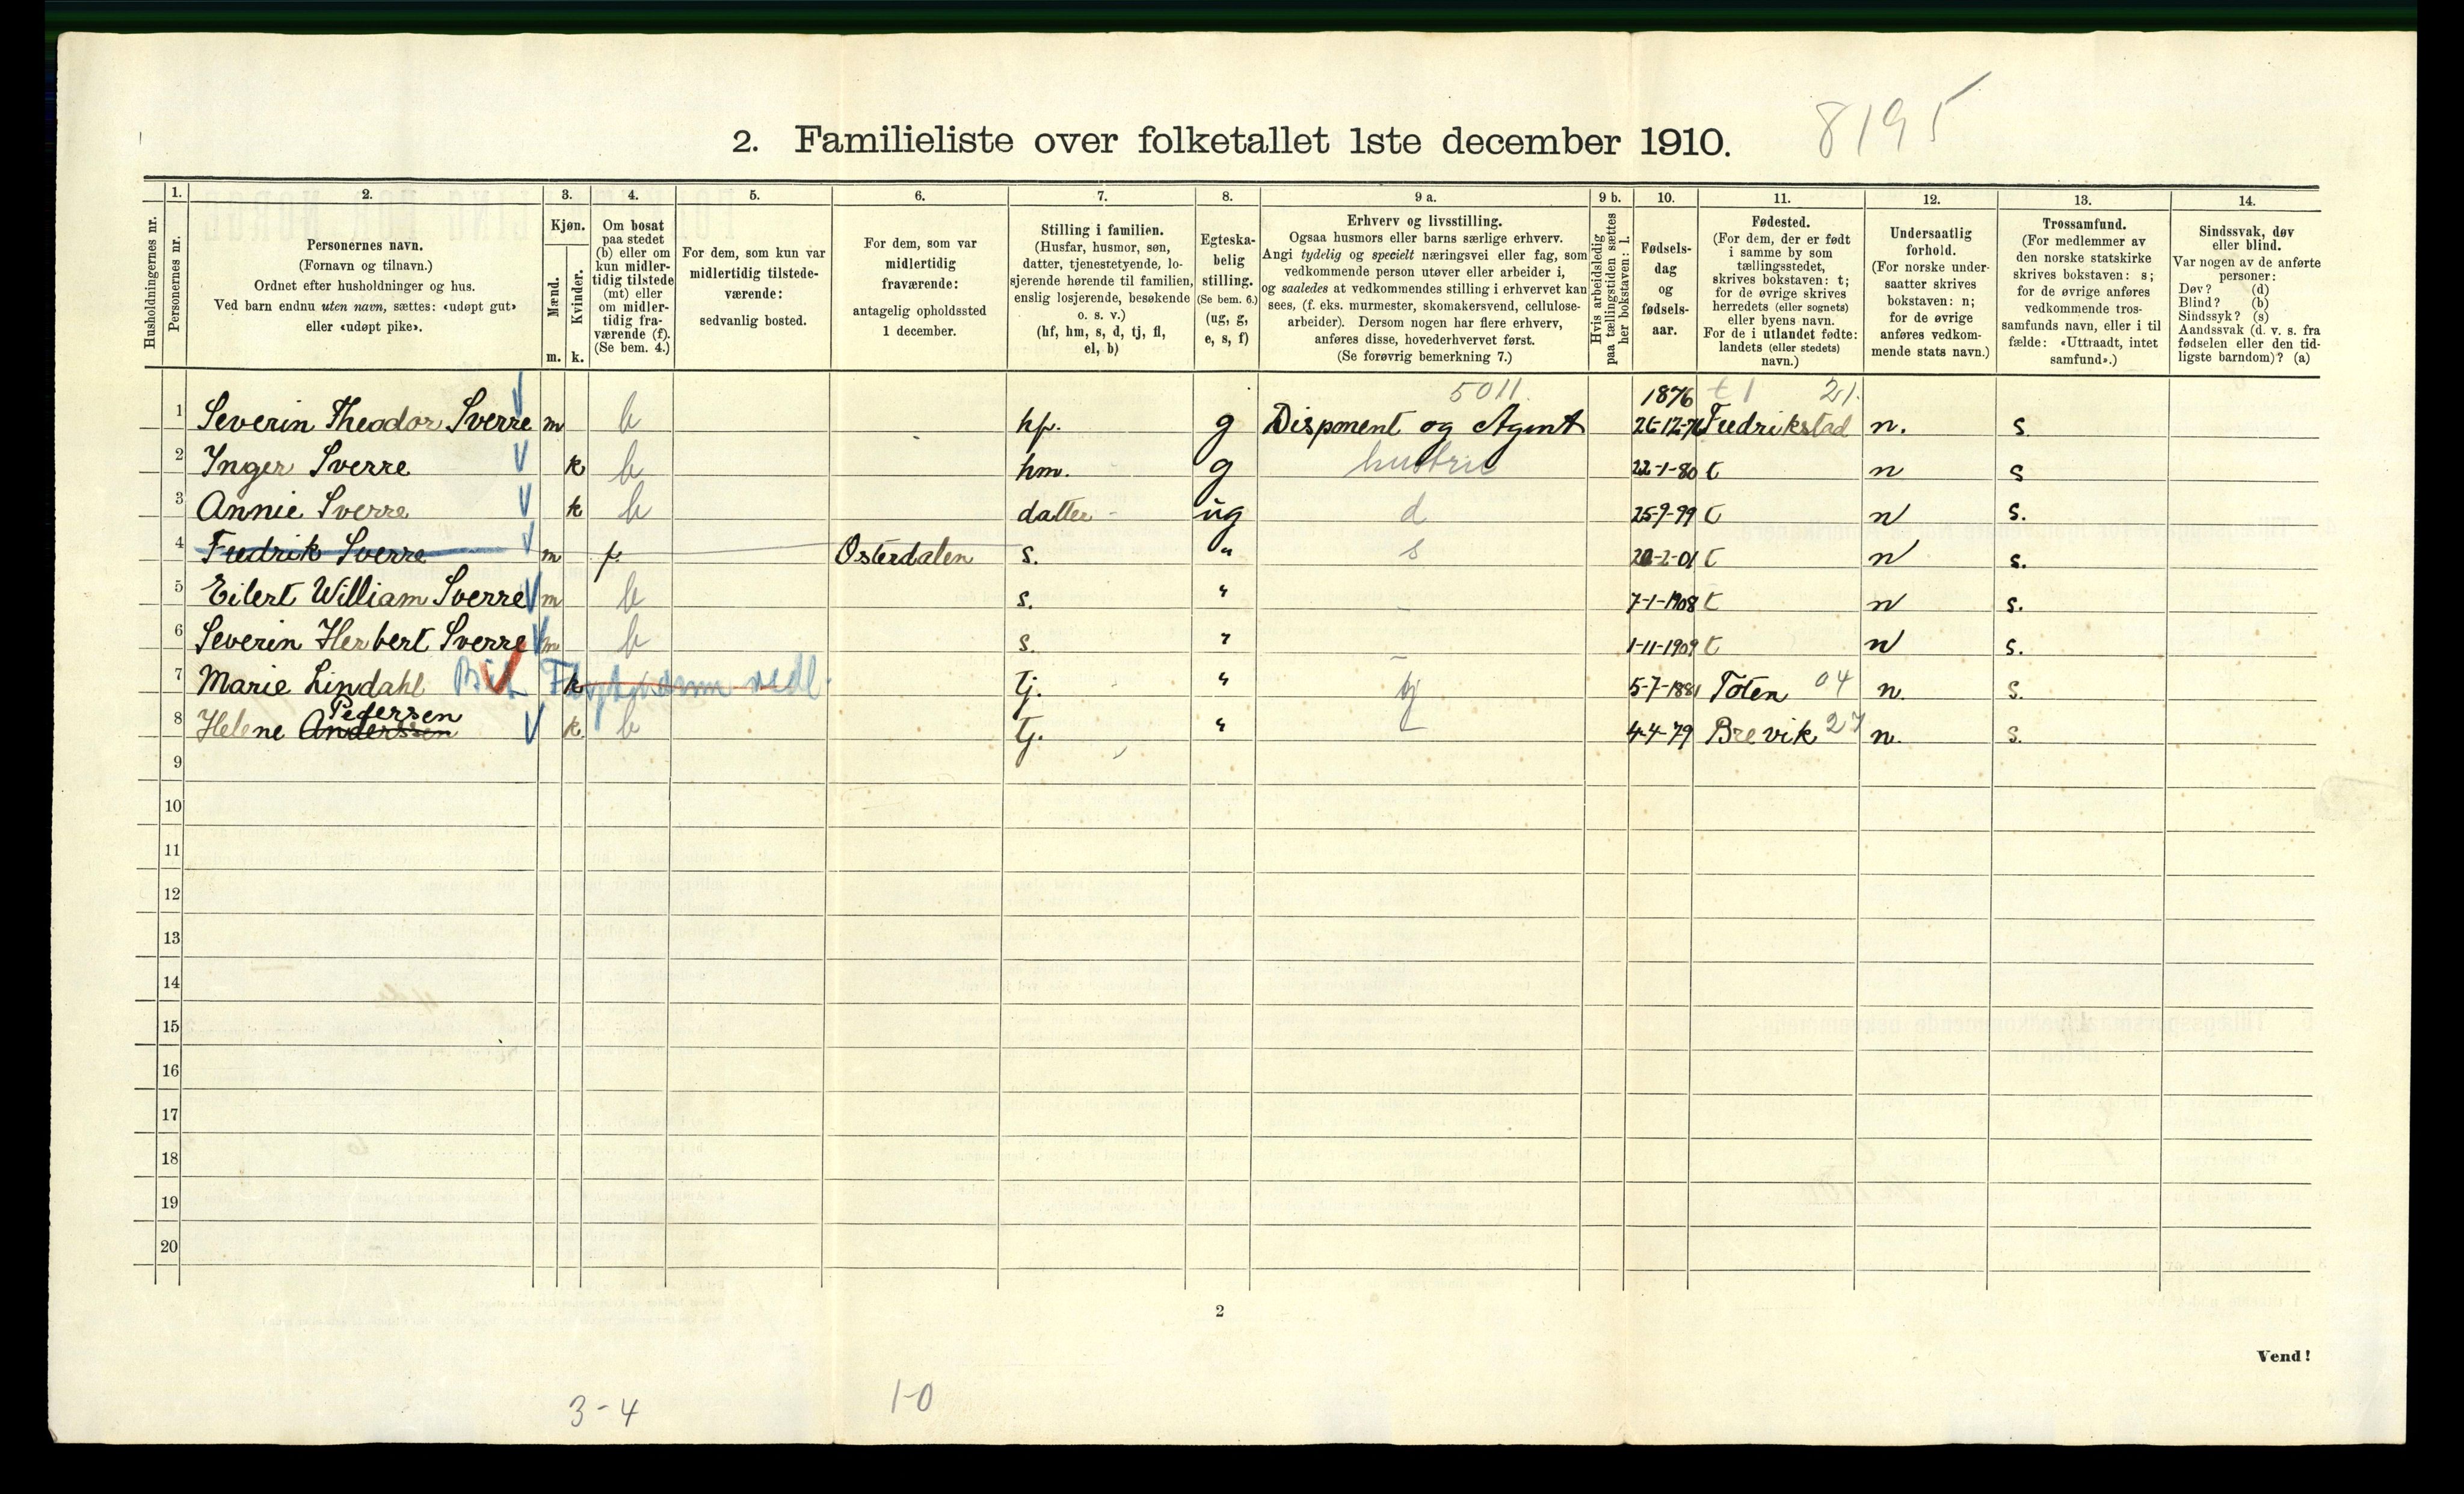 2. Familieliste over folketallet 1ste december 1910. 8195
Husholdningernes nr.
1. Personernes nr.
2. Personernes navn.
(Fornavn og tilnavn.)
Ordnet efter husholdninger og hus.
Ved barn endnu uten navn, sættes: «udøpt gut»
eller «udøpt pike».
3. Kjøn.
Mænd. m.
Kvinder. k.
4. Om bosat
paa stedet
(b) eller om
kun midler-
tidig tilstede
(mt) eller
om midler-
tidig fra-
værende (f).
(Se bem. 4.)
5. For dem, som kun var
midlertidig tilstede-
værende:
sedvanlig bosted.
6. For dem, som var
midlertidig
fraværende:
antagelig opholdssted
1 december.
7. Stilling i familien.
(Husfar, husmor, søn,
datter, tjenestetyende, lo-
sjerende hørende til familien,
enslig losjerende, besøkende
o. s. v.)
(hf, hm, s, d, tj, fl,
el, b)
8. Egteska-
belig
stilling.
(Se bem. 6.)
(ug, g,
e, s, f)
9 a. Erhverv og livsstilling.
Ogsaa husmors eller barns særlige erhverv.
Angi tydelig og specielt næringsvei eller fag, som
vedkommende person utøver eller arbeider i,
og saaledes at vedkommendes stilling i erhvervet kan
sees, (f. eks. murmester, skomakersvend, cellulose-
arbeider). Dersom nogen har flere erhverv,
anføres disse, hovederhvervet først.
(Se forøvrig bemerkning 7.)
9 b. Hvis arbeidsledig
paa tællingstiden sættes
her bokstaven: l.
10. Fødsels-
dag
og
fødsels-
aar.
11. Fødested.
(For dem, der er født
i samme by som
tællingsstedet,
skrives bokstaven: t;
for de øvrige skrives
herredets (eller sognets)
eller byens navn.
For de i utlandet fødte:
landets (eller stedets)
navn.)
12. Undersaatlig
forhold.
(For norske under-
saatter skrives
bokstaven: n;
for de øvrige
anføres vedkom-
mende stats navn.)
13. Trossamfund.
(For medlemmer av
den norske statskirke
skrives bokstaven: s;
for de øvrige anføres
vedkommende tros-
samfunds navn, eller i til-
fælde: «Uttraadt, intet
samfund».)
14. Sindssvak, døv
eller blind.
Var nogen av de anførte
personer:
Døv? (d)
Blind? (b)
Sindssyk? (s)
Aandssvak (d. v. s. fra
fødselen eller den tid-
ligste barndom)? (a)
5011. 1876 t 1 21.
1 Severin Theodor Sverre m b hf. g Dispment og Agent 26-12-76 Fredrikstad n. s.
2 Inger Sverre k b hm. g hustru 22-1-80 t n s
3 Annie Sverre k b datter ug d 25-9-99 t n s.
4 Fredrik Sverre m f. Osterdalen s. " s 20-2-01 t n s.
5 Eilert William Sverre m b s. " – 7-1-1908 t n s.
6 Severin Herbert Sverre m b s. " – 1-11-1909 t n s.
7 Marie Lindahl k Tj. " tj 5-7-1881 Toten 04 n. s.
Pedersen
8 Helene Anderssen k. b Tj. " 4-4-79 Brevik 27 n. s.
9
10
11
12
13
14
15
16
17
18
19
20
2
Vend!
3-4 1-0